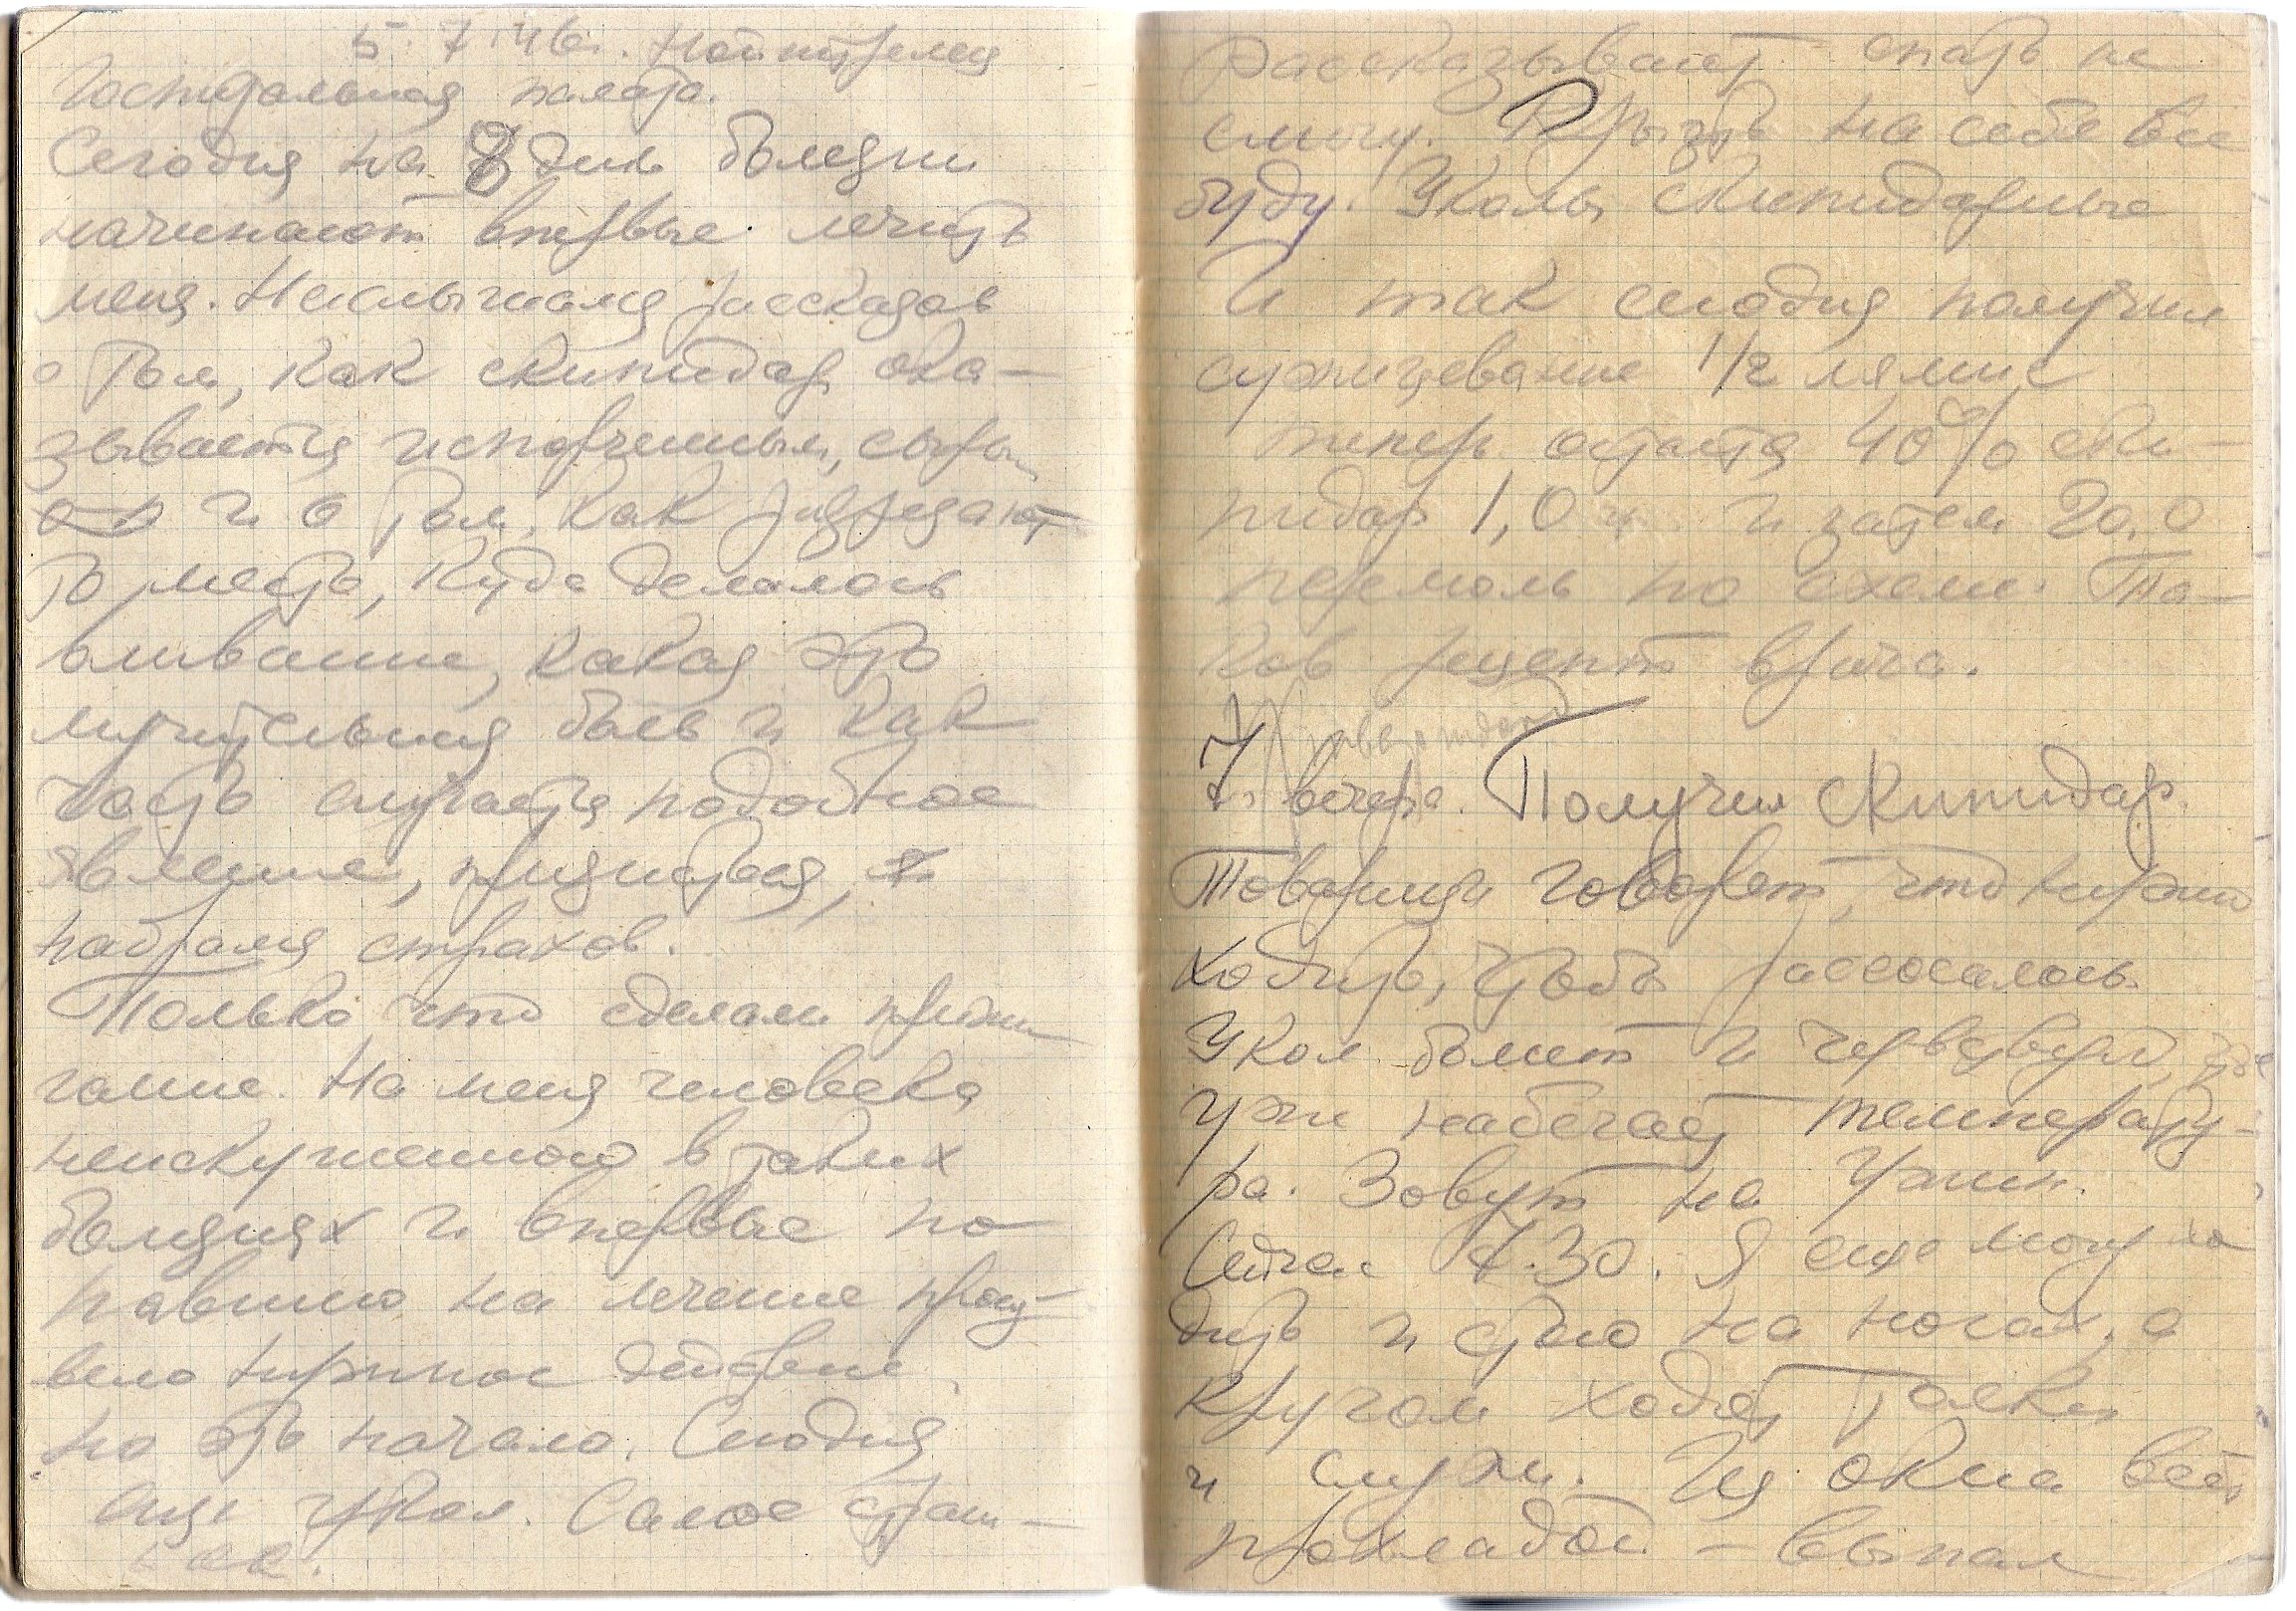 5. 7. 46 г. Нойштрелец
Госпитальная палата.
Сегодня на 8 день болезни
начинают впервые лечить
меня. Наслышался рассказов
о том, как скипидар ока-
зывается испорченным, сырым
и о том, как разрезают
то место, куда делалось
вливание, какая это
мучительная боль и как
часто случается подобное
явление, признаться,
набрался страхов.
Только что сделали прижи
гание. На меня человека
неискушенного в таких
болезнях и впервые по
павшего на лечение произ-
вело нужное действие,
но это начало. Сегодня
еще укол. Самое страш-
ное.
Рассказывают спать не
смогу. Грызть на себе все
буду. Уколы скипидарные
И так сегодня получил
1/2 ляпис
теперь остается 40% ски-
пидар 1,0 и затем 20,0
по схеме. Та-
ков рецепт врача.
7 вечера. Получил скипидар.
Товарищи говорят, что нужно
ходить, чтобы рассосалось.
Укол болит и чувствую, где
уже набегает температу-
ра. Зовут на ужин.
Сейчас 7.30. Я еще могу хо
дить и стою на ногах, а
кругом ходят толки
и слухи. Из окна веет
прохладой – выпал